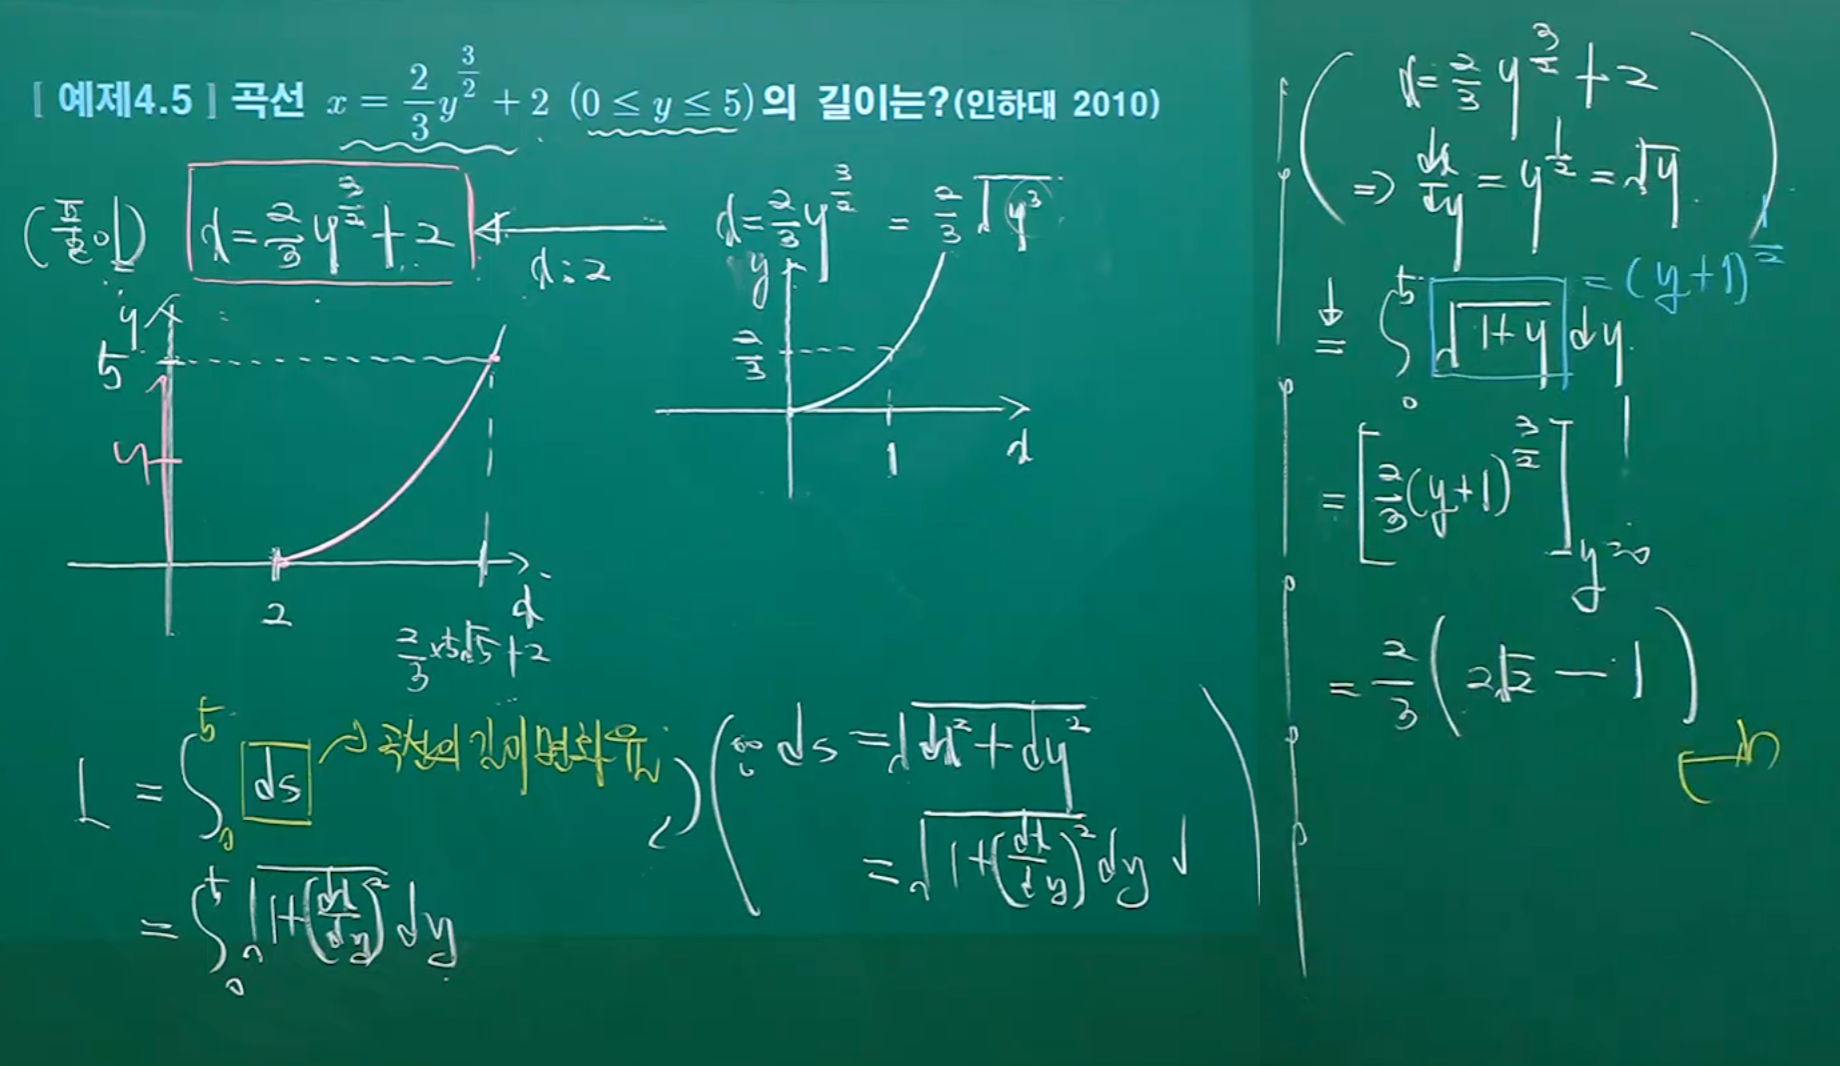 [ 예제4.5 ] 곡선 x = 2/3 y^(3/2) + 2 (0 ≤ y ≤ 5)의 길이는?(인하대 2010)
(풀이) x = 2/3 y^(3/2) + 2
x : 2
x = 2/3 y^(3/2) = 2/3 √(y^3)
y
5
y
2
x
2/3 × 5√5 + 2
y
2/3
1
x
L = ∫_0^5 ds → 곡선의 길이 변화율
= ∫_0^5 √(1+(dx/dy)^2) dy
(∵ ds = √(dx^2 + dy^2)
= √(1+(dx/dy)^2) dy )
( x = 2/3 y^(3/2) + 2
⇒ dx/dy = y^(1/2) = √y )
↓
= ∫_0^5 √(1+y) dy = (y+1)^(1/2)
= [ 2/3 (y+1)^(3/2) ]_(y=0)^1
= 2/3 ( 2√2 − 1 )